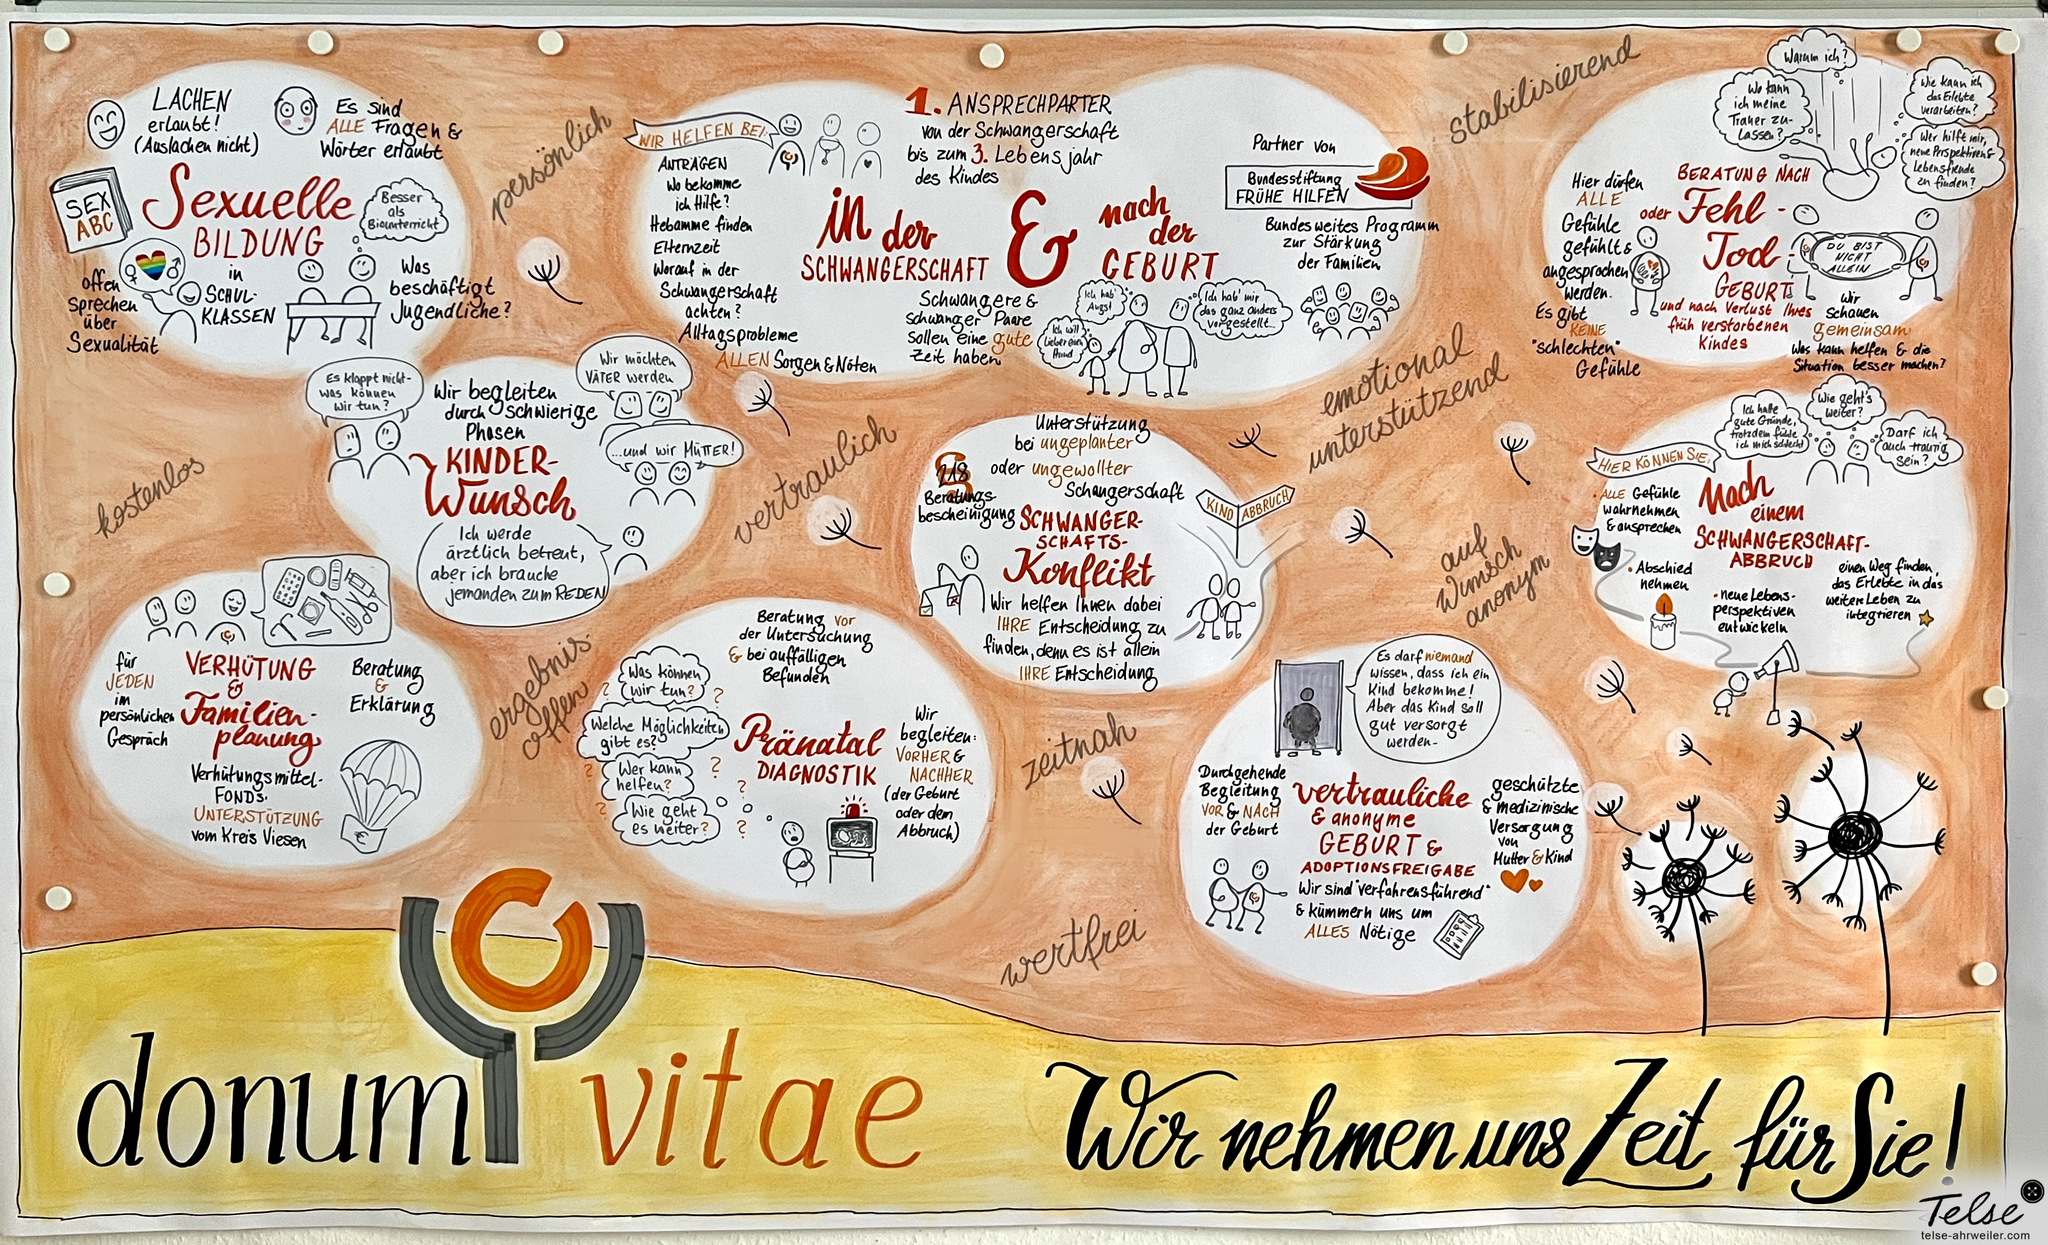 LACHEN
erlaubt!
(Auslachen nicht)
Es sind
ALLE Fragen &
Wörter erlaubt
SEX
ABC
Sexuelle
BILDUNG
in
SCHUL-
KLASSEN
Besser
als
Biounterricht
offen
sprechen
über
Sexualität
Was
beschäftigt
Jugendliche?
persönlich
WIR HELFEN BEI:
ANTRÄGEN
Wo bekomme
ich Hilfe?
Hebamme finden
Elternzeit
Worauf in der
Schwangerschaft
achten?
Alltagsprobleme
ALLEN Sorgen & Nöten
1. ANSPRECHPARTER
von der Schwangerschaft
bis zum 3. Lebensjahr
des Kindes
in der
SCHWANGERSCHAFT
&
nach
der
GEBURT
Schwangere &
schwanger Paare
sollen eine gute
Zeit haben
Ich hab'
Angst
Ich will
lieber einen
Hund
Ich hab' mir
das ganz anders
vorgestellt...
Partner von
Bundesstiftung
FRÜHE HILFEN
Bundesweites Programm
zur Stärkung
der Familien
stabilisierend
Warum ich?
Wo kann
ich meine
Trauer zu-
lassen?
Wie kann ich
das Erlebte
verarbeiten?
Wer hilft mir,
neue Perspektiven &
Lebensfreude
zu finden?
BERATUNG NACH
Fehl-
oder
Tod-
GEBURT
und nach Verlust Ihres
früh verstorbenen
Kindes
Hier dürfen
ALLE
Gefühle
gefühlt &
angesprochen
werden.
Es gibt
KEINE
"schlechten"
Gefühle
DU BIST
NICHT
ALLEIN
Wir
schauen
gemeinsam:
Was kann helfen & die
Situation besser machen?
kostenlos
Es klappt nicht-
was können
wir tun?
Wir begleiten
durch schwierige
Phasen
KINDER-
Wunsch
Wir möchten
VÄTER werden
...und wir MÜTTER!
Ich werde
ärztlich betreut,
aber ich brauche
jemanden zum REDEN
vertraulich
Unterstützung
bei ungeplanter
oder ungewollter
Schangerschaft
§
218
Beratungs-
bescheinigung
SCHWANGER-
SCHAFTS-
Konflikt
Wir helfen Ihnen dabei
IHRE Entscheidung zu
finden, denn es ist allein
IHRE Entscheidung
KIND
ABBRUCH
emotional
unterstützend
auf
Wunsch
anonym
Ich hatte
gute Gründe,
trotzdem fühle
ich mich schlecht
Wie geht's
weiter?
Darf ich
auch traurig
sein?
HIER KÖNNEN SIE:
• ALLE Gefühle
wahrnehmen
& ansprechen
• Abschied
nehmen
• neue Lebens-
perspektiven
entwickeln
einen Weg finden,
das Erlebte in das
weitere Leben zu
integrieren
Nach
einem
SCHWANGERSCHAFT-
ABBRUCH
für
JEDEN
im
persönlichen
Gespräch
VERHÜTUNG
&
Familien-
planung
Beratung
&
Erklärung
Verhütungsmittel-
FONDS:
UNTERSTÜTZUNG
vom Kreis Viesen
€
ergebnis
offen
Beratung vor
der Untersuchung
& bei auffälligen
Befunden
Was können
wir tun?
Welche Möglichkeiten
gibt es?
Wer kann
helfen?
Wie geht
es weiter?
? ? ? ? ? ? ?
Pränatal
DIAGNOSTIK
Wir
begleiten:
VORHER &
NACHHER
(der Geburt
oder dem
Abbruch)
zeitnah
wertfrei
Es darf niemand
wissen, dass ich ein
Kind bekomme!
Aber das Kind soll
gut versorgt
werden-
Durchgehende
Begleitung
VOR & NACH
der Geburt
vertrauliche
& anonyme
GEBURT &
ADOPTIONSFREIGABE
Wir sind "verfahrensführend"
& kümmern uns um
ALLES Nötige
geschützte
& medizinische
Versorgung
von
Mutter & Kind
donum vitae
Wir nehmen uns Zeit für Sie!
Telse
telse-ahrweiler.com